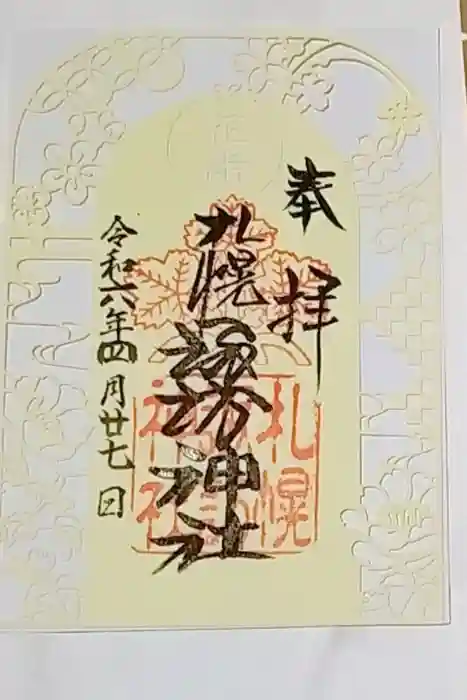 奉拝
札幌諏訪神社
令和六年四月廿七日
札幌
諏訪
神社